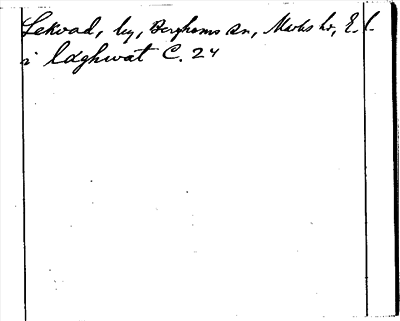 Lekvad, by, Berghems sn, Marks hd, E. l.
i læghwat C. 24